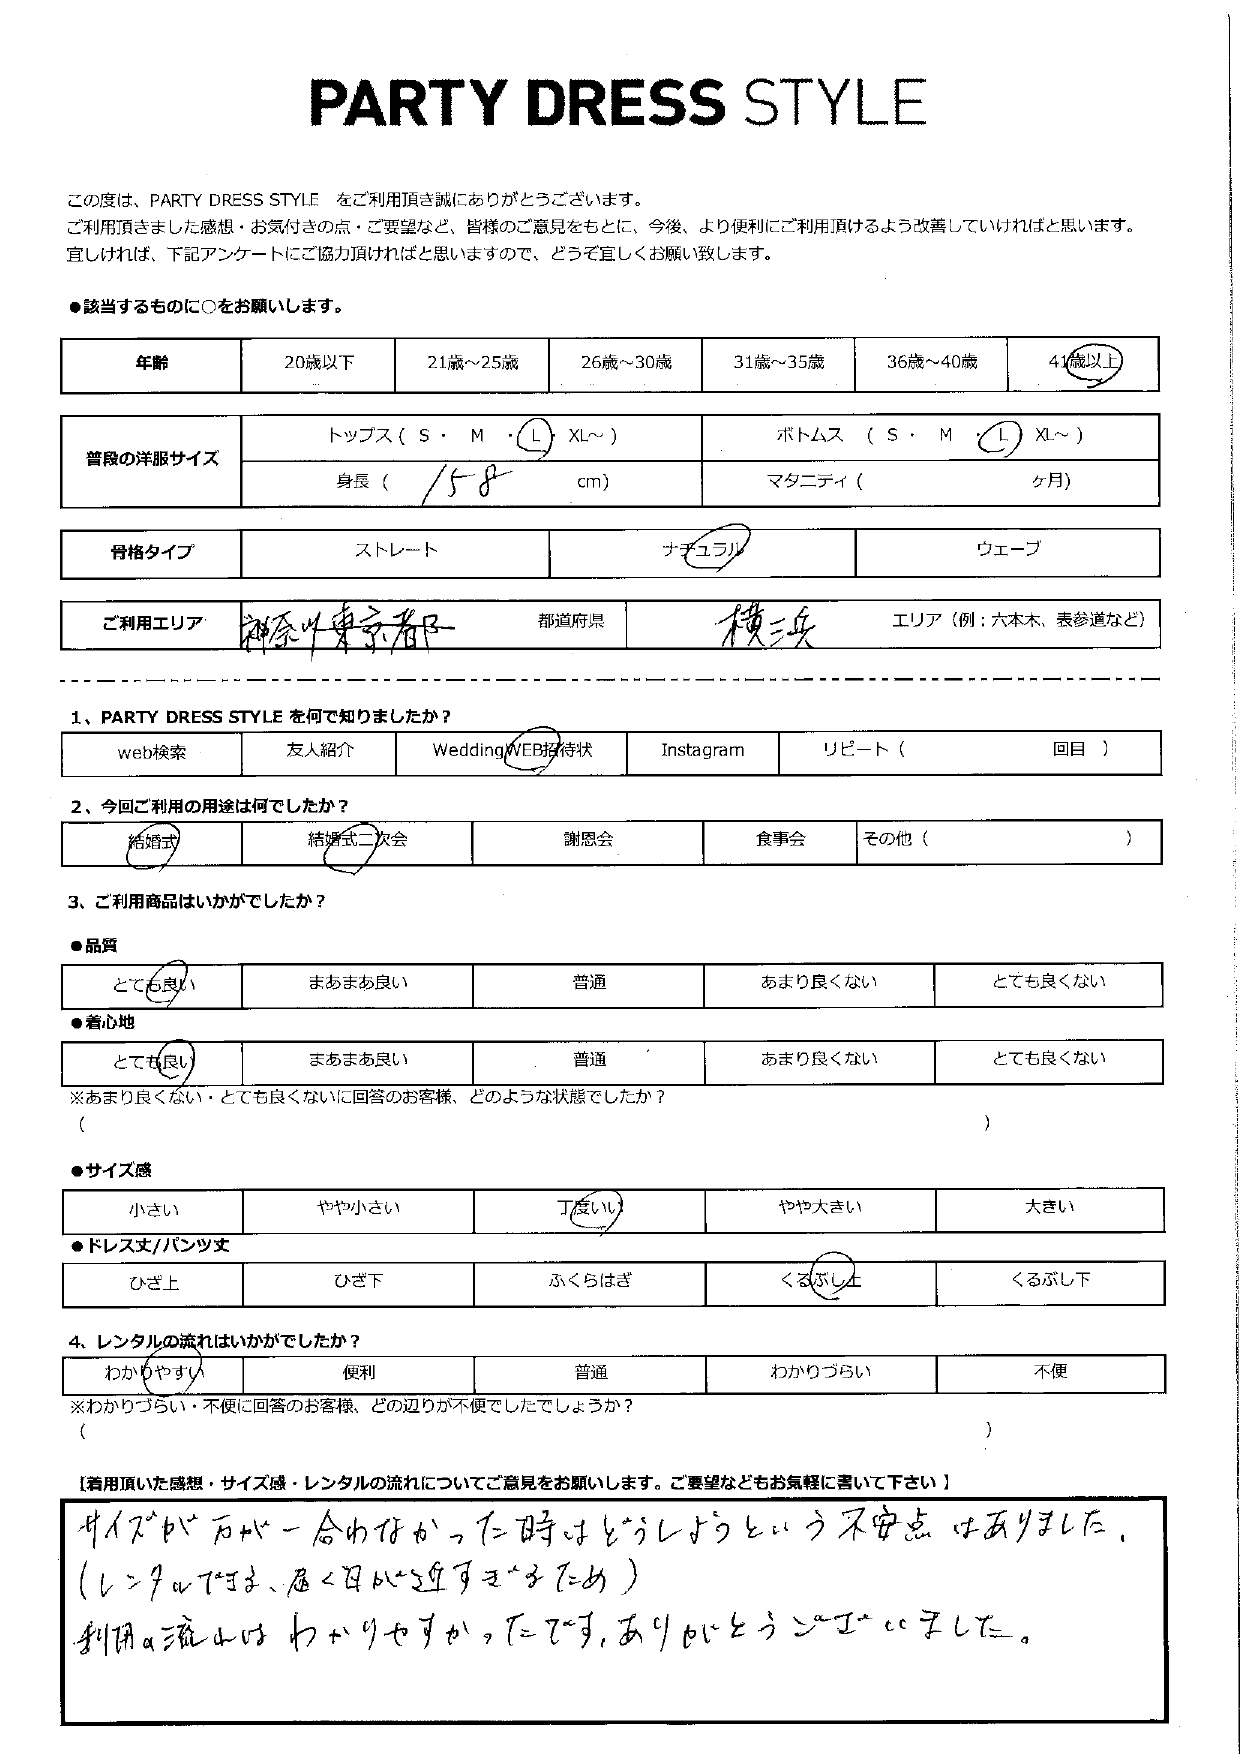 PARTY DRESS STYLE
この度は、PARTY DRESS STYLE をご利用頂き誠にありがとうございます。
ご利用頂きました感想・お気付きの点・ご要望など、皆様のご意見をもとに、今後、より便利にご利用頂けるよう改善していければと思います。
宜しければ、下記アンケートにご協力頂ければと思いますので、どうぞ宜しくお願い致します。
●該当するものに○をお願いします。
年齢 20歳以下 21歳～25歳 26歳～30歳 31歳～35歳 36歳～40歳 41歳以上
普段の洋服サイズ トップス ( S ・ M ・ L ・ XL～ ) ボトムス ( S ・ M ・ L ・ XL～ )
身長 ( 158 cm) マタニティ ( ヶ月)
骨格タイプ ストレート ナチュラル ウェーブ
ご利用エリア 神奈川 東京都 都道府県 横浜 エリア（例；六本木、表参道など）
1、PARTY DRESS STYLE を何で知りましたか？
web検索 友人紹介 WeddingWEB招待状 Instagram リピート（ 回目 ）
2、今回ご利用の用途は何でしたか？
結婚式 結婚式二次会 謝恩会 食事会 その他（ ）
3、ご利用商品はいかがでしたか？
●品質
とても良い まあまあ良い 普通 あまり良くない とても良くない
●着心地
とても良い まあまあ良い 普通 あまり良くない とても良くない
※あまり良くない・とても良くないに回答のお客様、どのような状態でしたか？
（ ）
●サイズ感
小さい やや小さい 丁度いい やや大きい 大きい
●ドレス丈/パンツ丈
ひざ上 ひざ下 ふくらはぎ くるぶし上 くるぶし下
4、レンタルの流れはいかがでしたか？
わかりやすい 便利 普通 わかりづらい 不便
※わかりづらい・不便に回答のお客様、どの辺りが不便でしたでしょうか？
（ ）
【着用頂いた感想・サイズ感・レンタルの流れについてご意見をお願いします。ご要望などもお気軽に書いて下さい】
サイズが万が一合わなかった時はどうしようという不安点はありました。
(レンタルできる、届く日が近すぎるため)
利用の流れはわかりやすかったです。ありがとうございました。